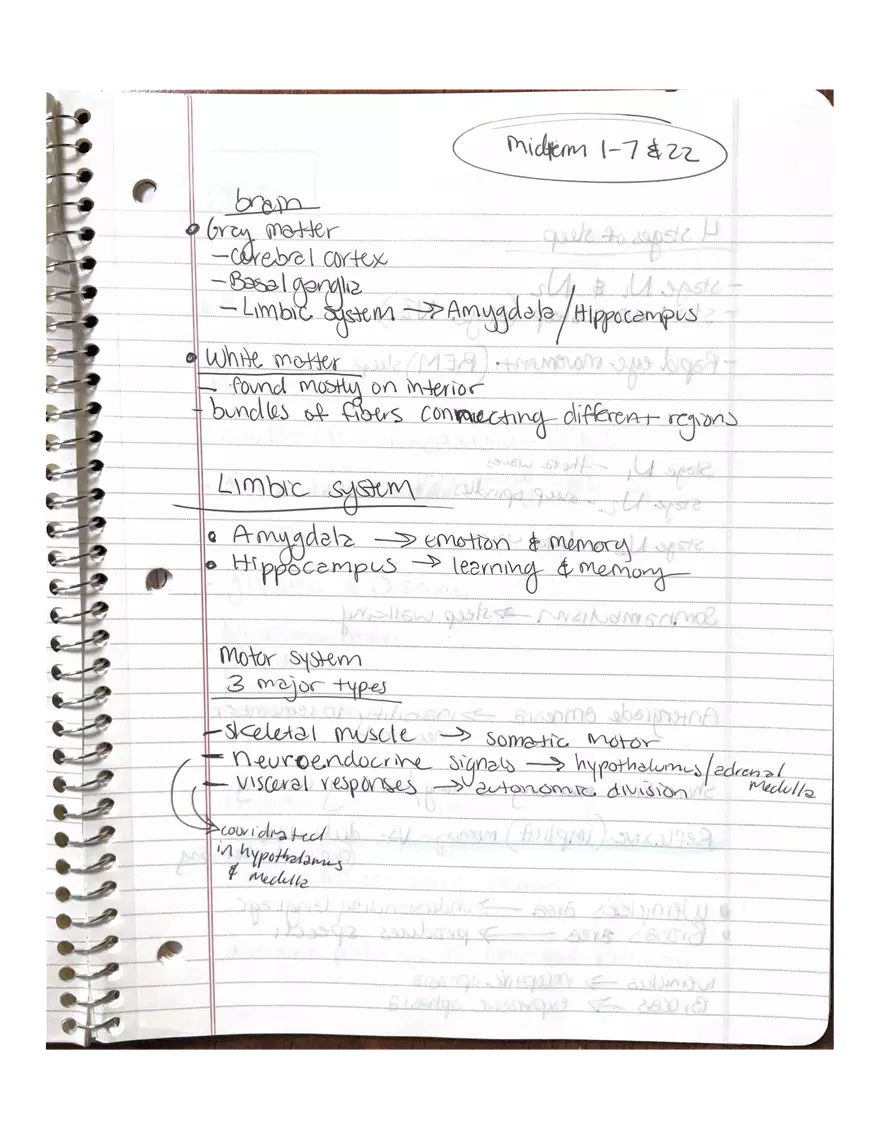 midterm 1-7 & 22
brain
• Gray matter
- Cerebral cortex
- Basal ganglia
- Limbic system → Amygdala / Hippocampus
• White matter
- found mostly on interior
- bundles of fibers connecting different regions
Limbic system
• Amygdala → emotion & memory
• Hippocampus → learning & memory
Motor system
3 major types
- skeletal muscle → somatic motor
- neuroendocrine signals → hypothalamus/adrenal medulla
- visceral responses → autonomic division
→ coordinated
in hypothalamus
& medulla